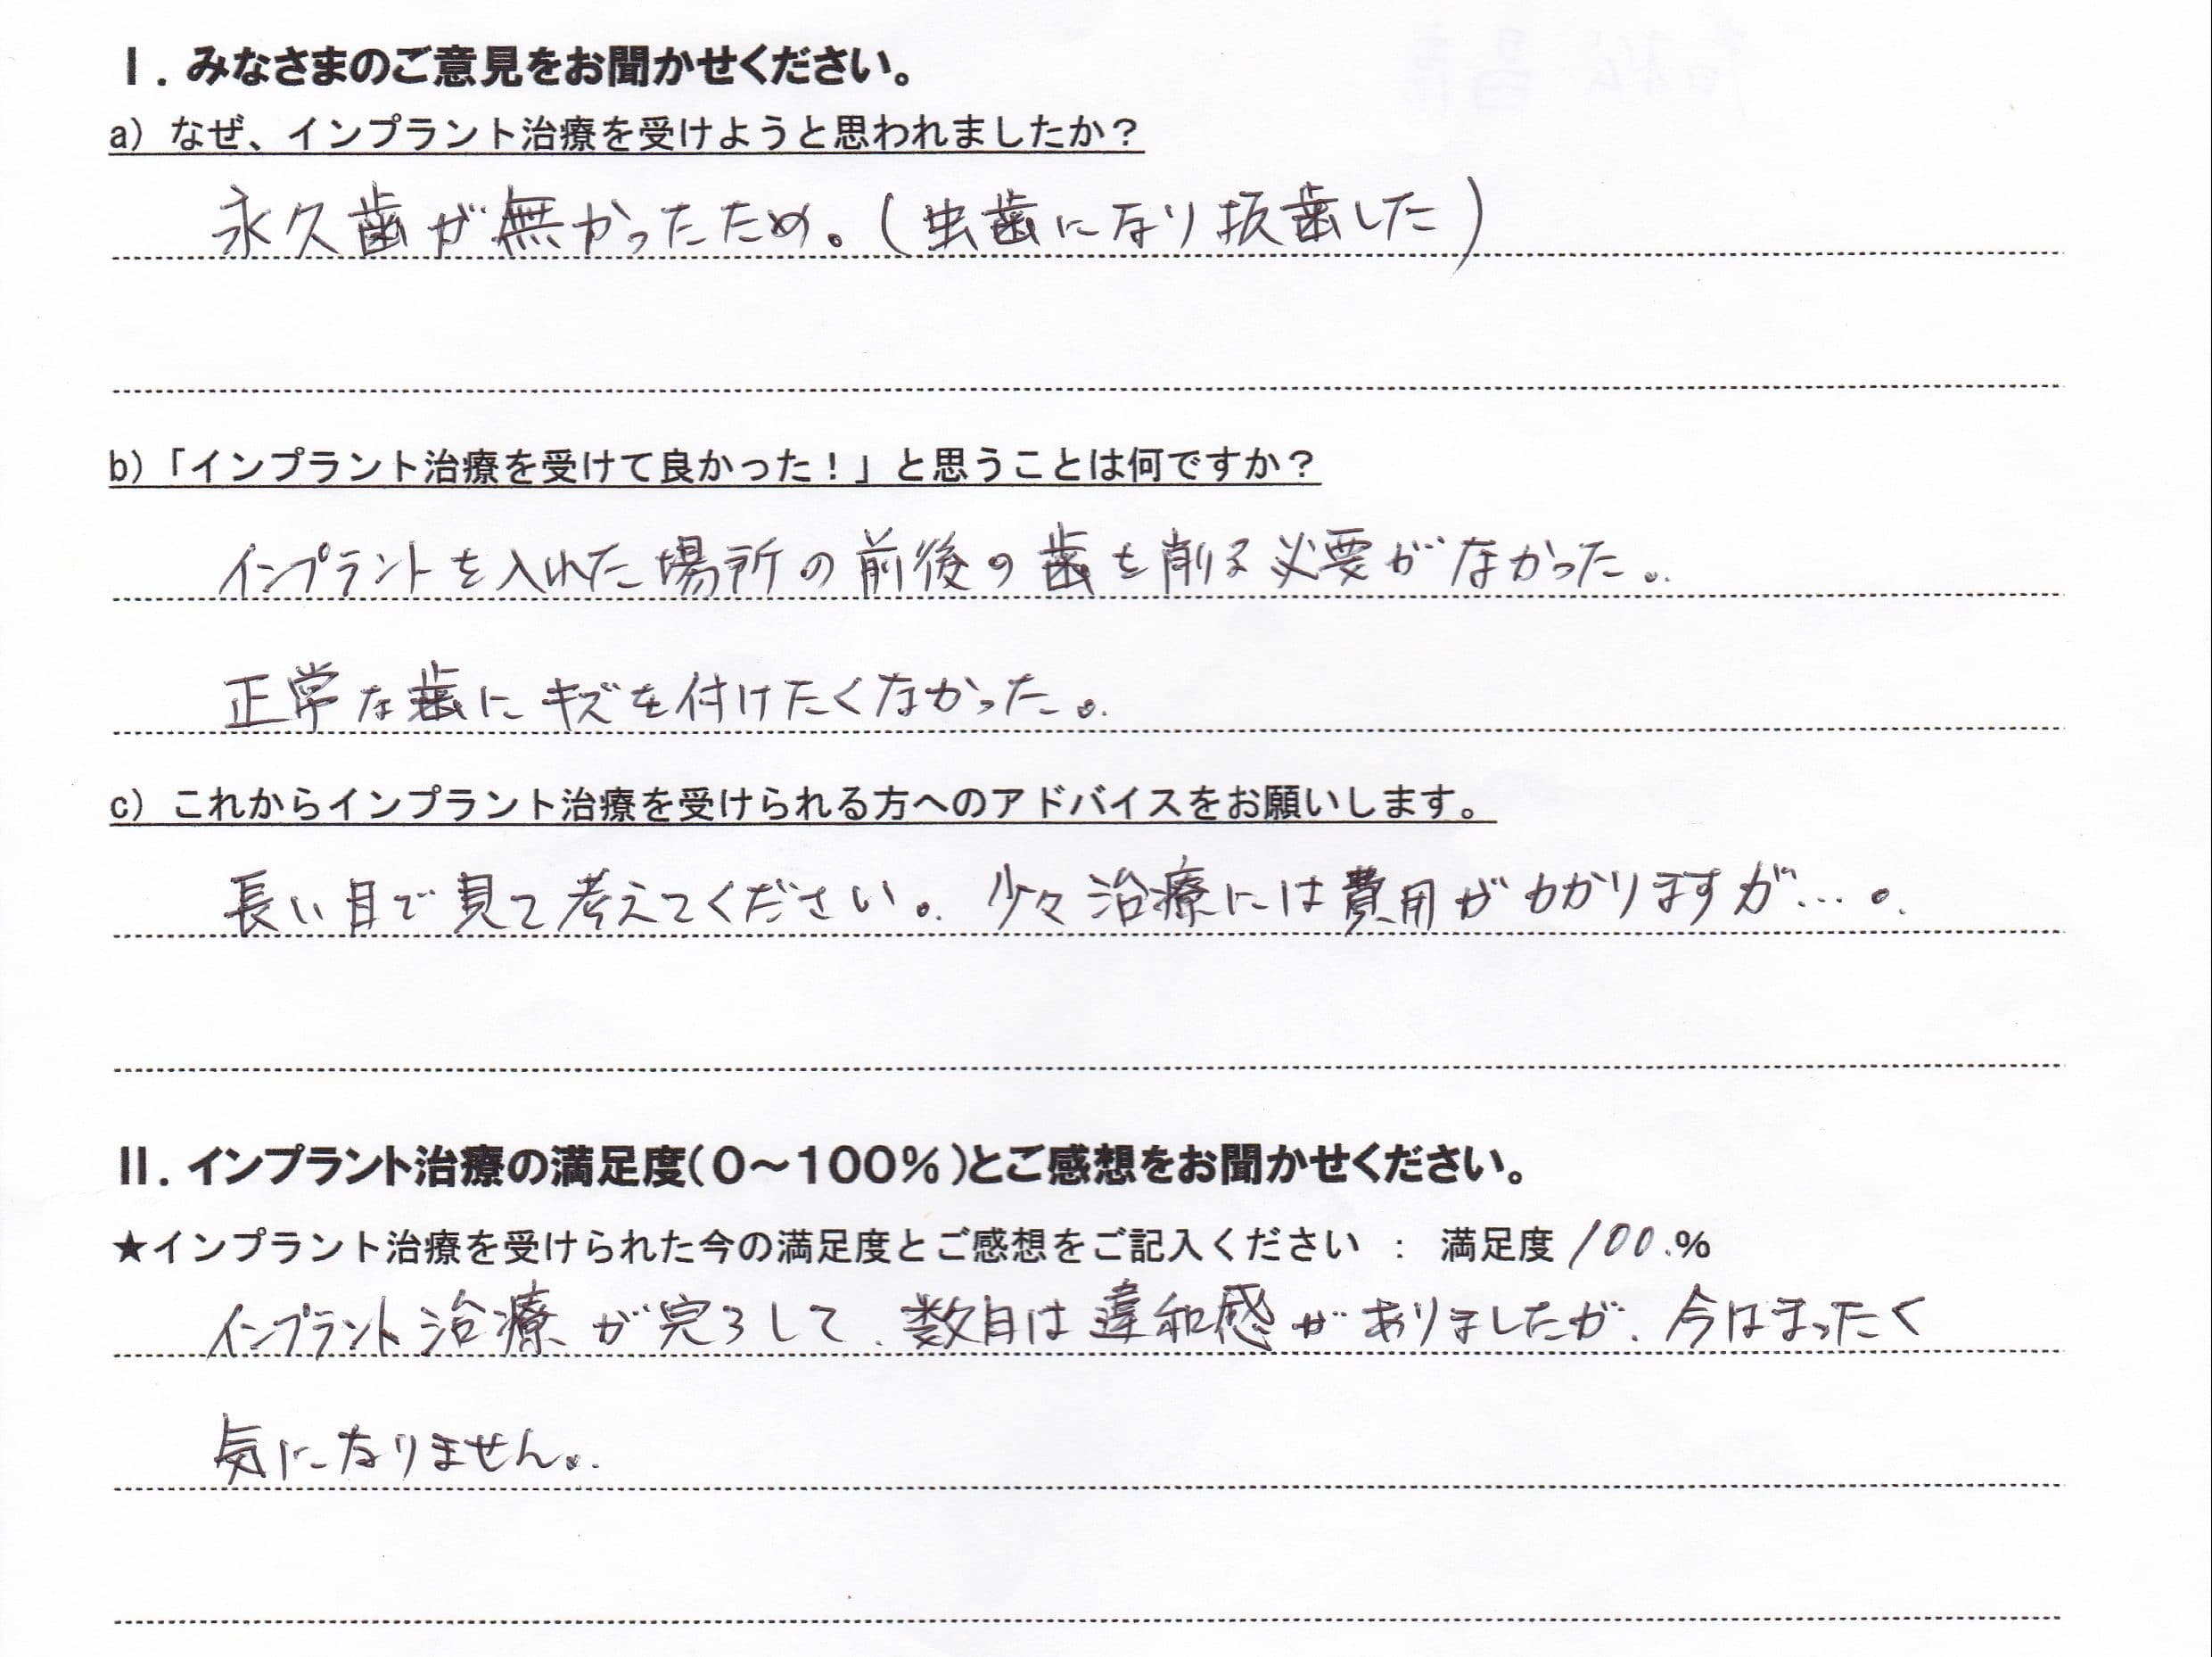 Ⅰ. みなさまのご意見をお聞かせください。
a) なぜ、インプラント治療を受けようと思われましたか？
永久歯が無かったため。(虫歯になり抜歯した)
b)「インプラント治療を受けて良かった！」と思うことは何ですか？
インプラントを入れた場所の前後の歯を削る必要がなかった。
正常な歯にキズを付けたくなかった。
c) これからインプラント治療を受けられる方へのアドバイスをお願いします。
長い目で見て考えてください。少々治療には費用がかかりますが…。
Ⅱ. インプラント治療の満足度(0～100%)とご感想をお聞かせください。
★インプラント治療を受けられた今の満足度とご感想をご記入ください : 満足度 100.%
インプラント治療が完了して、数日は違和感がありましたが、今はまったく
気になりません。